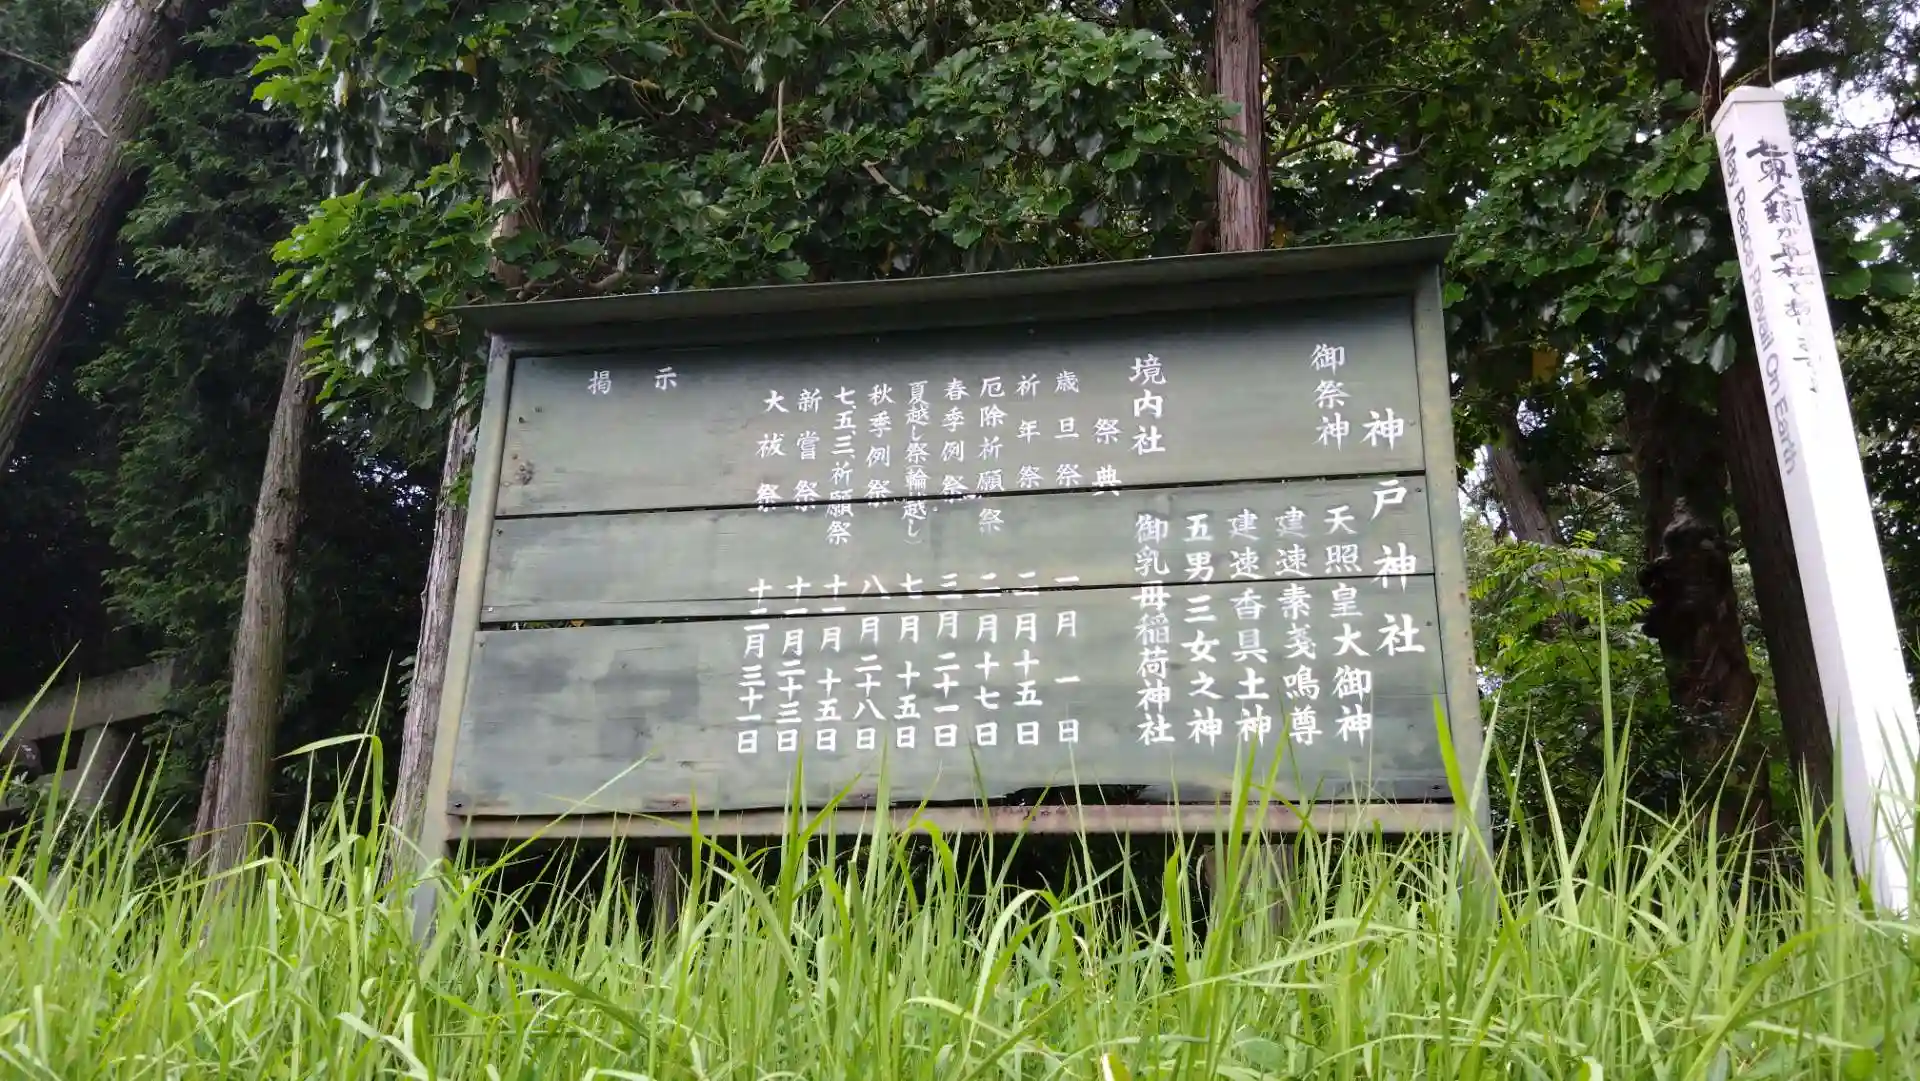 神戸神社
御祭神
天照皇大御神
建速素戔鳴尊
建速香具土神
五男三女之神
境内社
御乳母稲荷神社
祭典
歳旦祭 一月一日
祈年祭 二月十五日
厄除祈願祭 二月十七日
春季例祭 三月二十一日
夏越し祭(輪越し) 七月十五日
秋季例祭 八月二十八日
七、五、三、祈願祭 十一月十五日
新嘗祭 十一月二十三日
大祓祭 十二月三十一日
掲示
世界人類が平和でありますように
May Peace Prevail On Earth